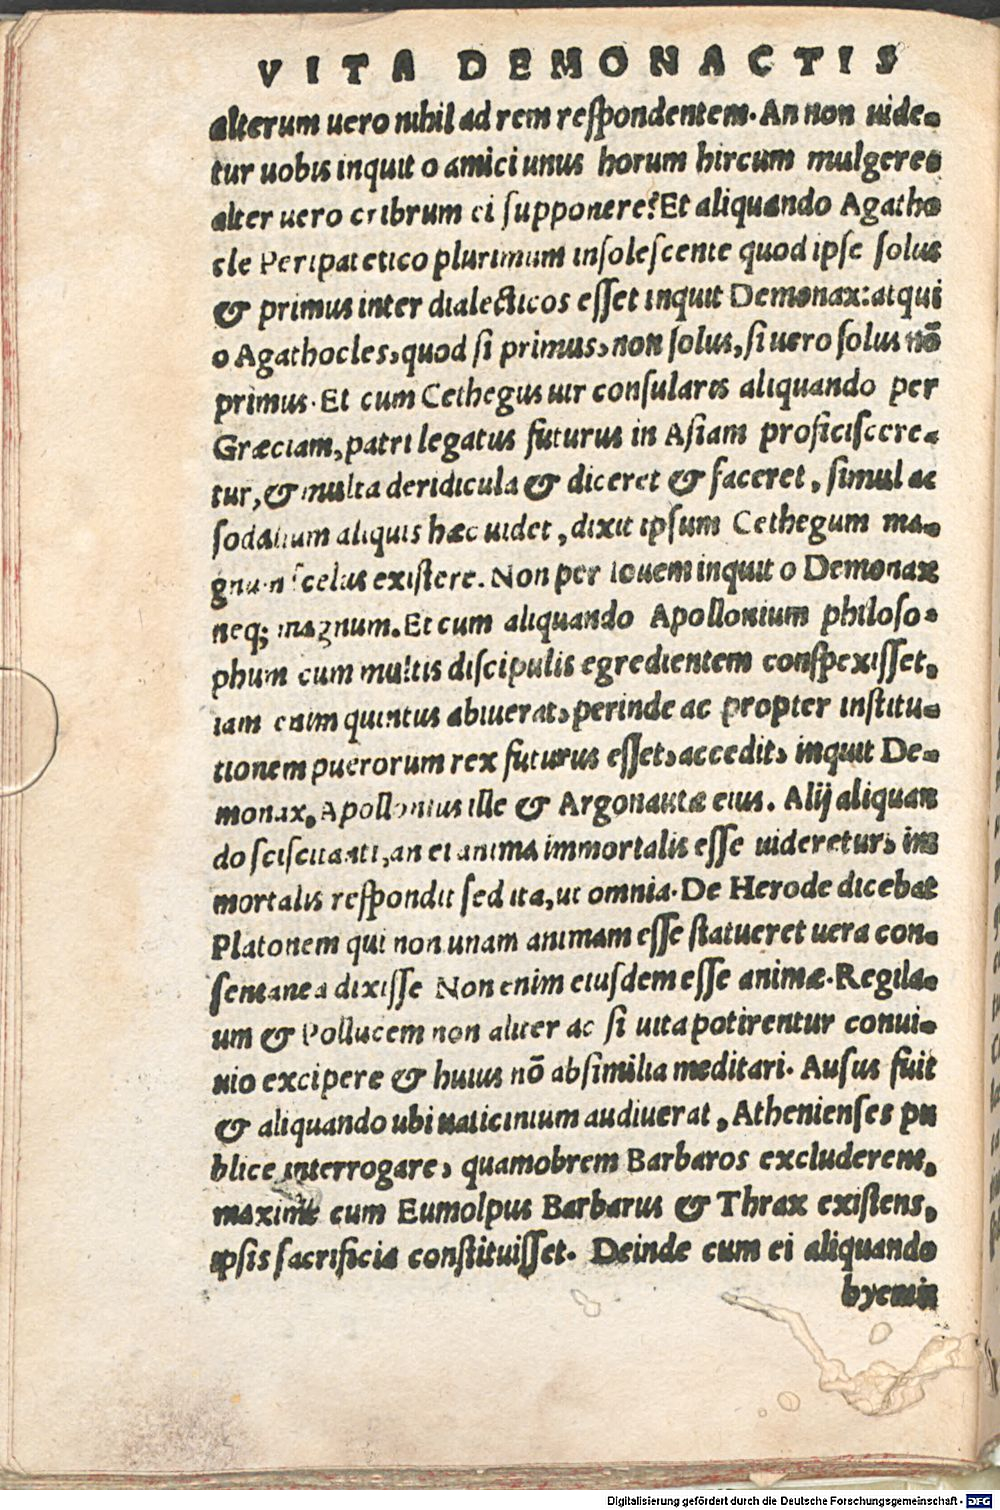 VITA DEMONACTIS
alterum uero nihil ad rem reſpondentem. An non uide-
tur uobis inquit o amici unus horum hircum mulgere,
alter uero cribrum ei ſupponere? Et aliquando Agatho
cle Peripatetico plurimum inſoleſcente quod ipſe ſolus
& primus inter dialecticos eſſet inquit Demonax: atqui
o Agathocles, quod ſi primus, non ſolus, ſi uero ſolus nō
primus. Et cum Cethegus uir conſularis aliquando per
Græciam, patri legatus futurus in Aſiam proficiſcere-
tur, & multa deridicula & diceret & faceret, ſimul ac
ſodalium aliquis hæc uidet, dixit ipſum Cethegum ma-
gnum ſcelus exiſtere. Non per Iouem inquit o Demonax
neq; magnum. Et cum aliquando Apollonium philoſo-
phum cum multis diſcipulis egredientem conſpexiſſet,
iam enim quintus abiuerat, perinde ac propter inſtitu-
tionem puerorum rex futurus eſſet, accedit, inquit De-
monax, Apollonius ille & Argonautæ eius. Alij aliquan
do ſciſcitanti, an ei anima immortalis eſſe uideretur, im
mortalis reſpondit ſed ita, ut omnia. De Herode dicebat
Platonem qui non unam animam eſſe ſtatueret uera con-
ſentanea dixiſſe Non enim eiuſdem eſſe animæ. Regila-
um & Pollucem non aliter ac ſi uita potirentur conui-
uio excipere & huius nō abſimilia meditari. Auſus fuit
& aliquando ubi uaticinium audiuerat, Athenienſes pu
blice interrogare, quamobrem Barbaros excluderent,
maxime cum Eumolpus Barbarus & Thrax exiſtens,
ipſis ſacrificia conſtituiſſet. Deinde cum ei aliquando
hyemis
Digitalisierung gefördert durch die Deutsche Forschungsgemeinschaft - DFG